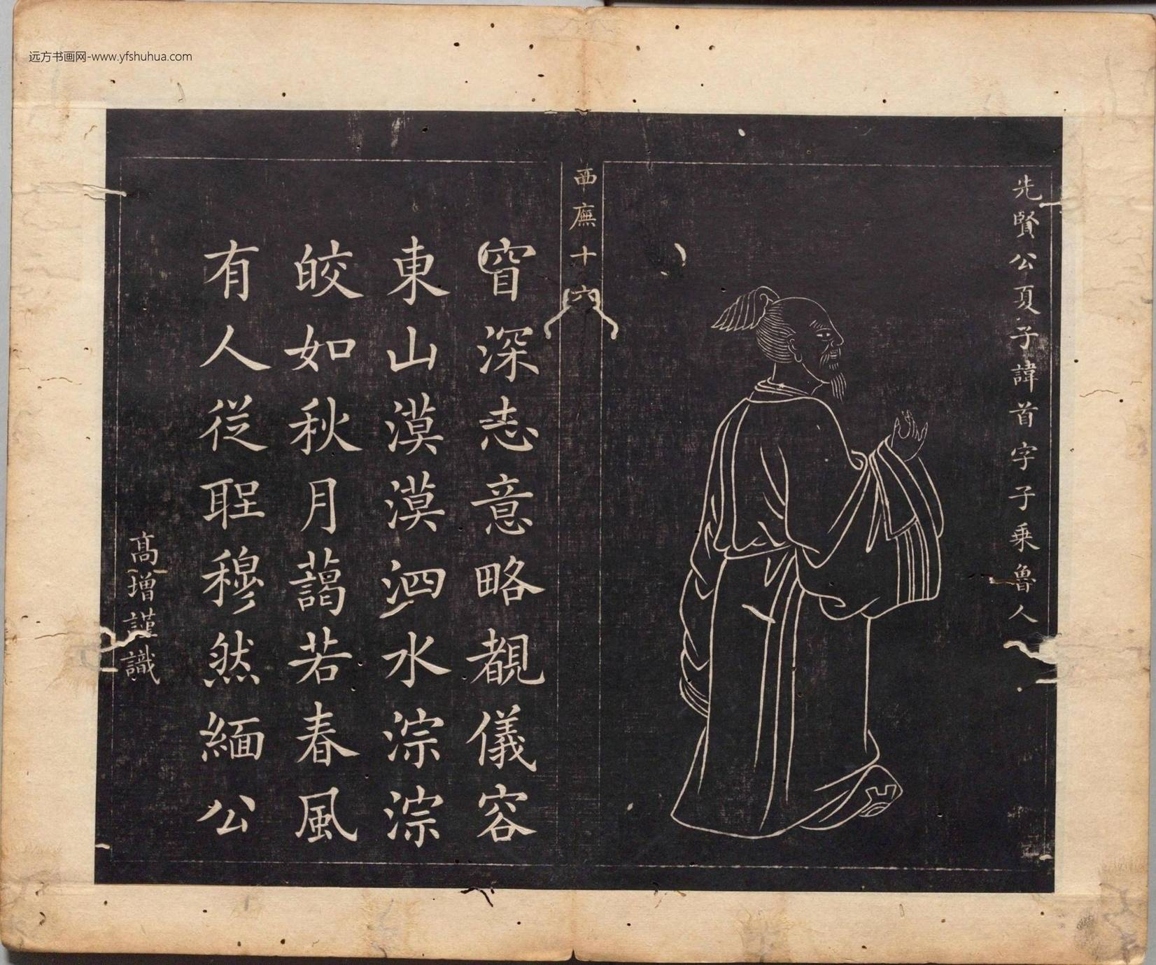 远方书画网-www.yfshuhua.com
先賢公夏子諱首字子乘魯人
西廡十六
窅深志意略覩儀容
東山漠漠泗水淙淙
皎如秋月藹若春風
有人從聖穆然緬公
髙增謹識